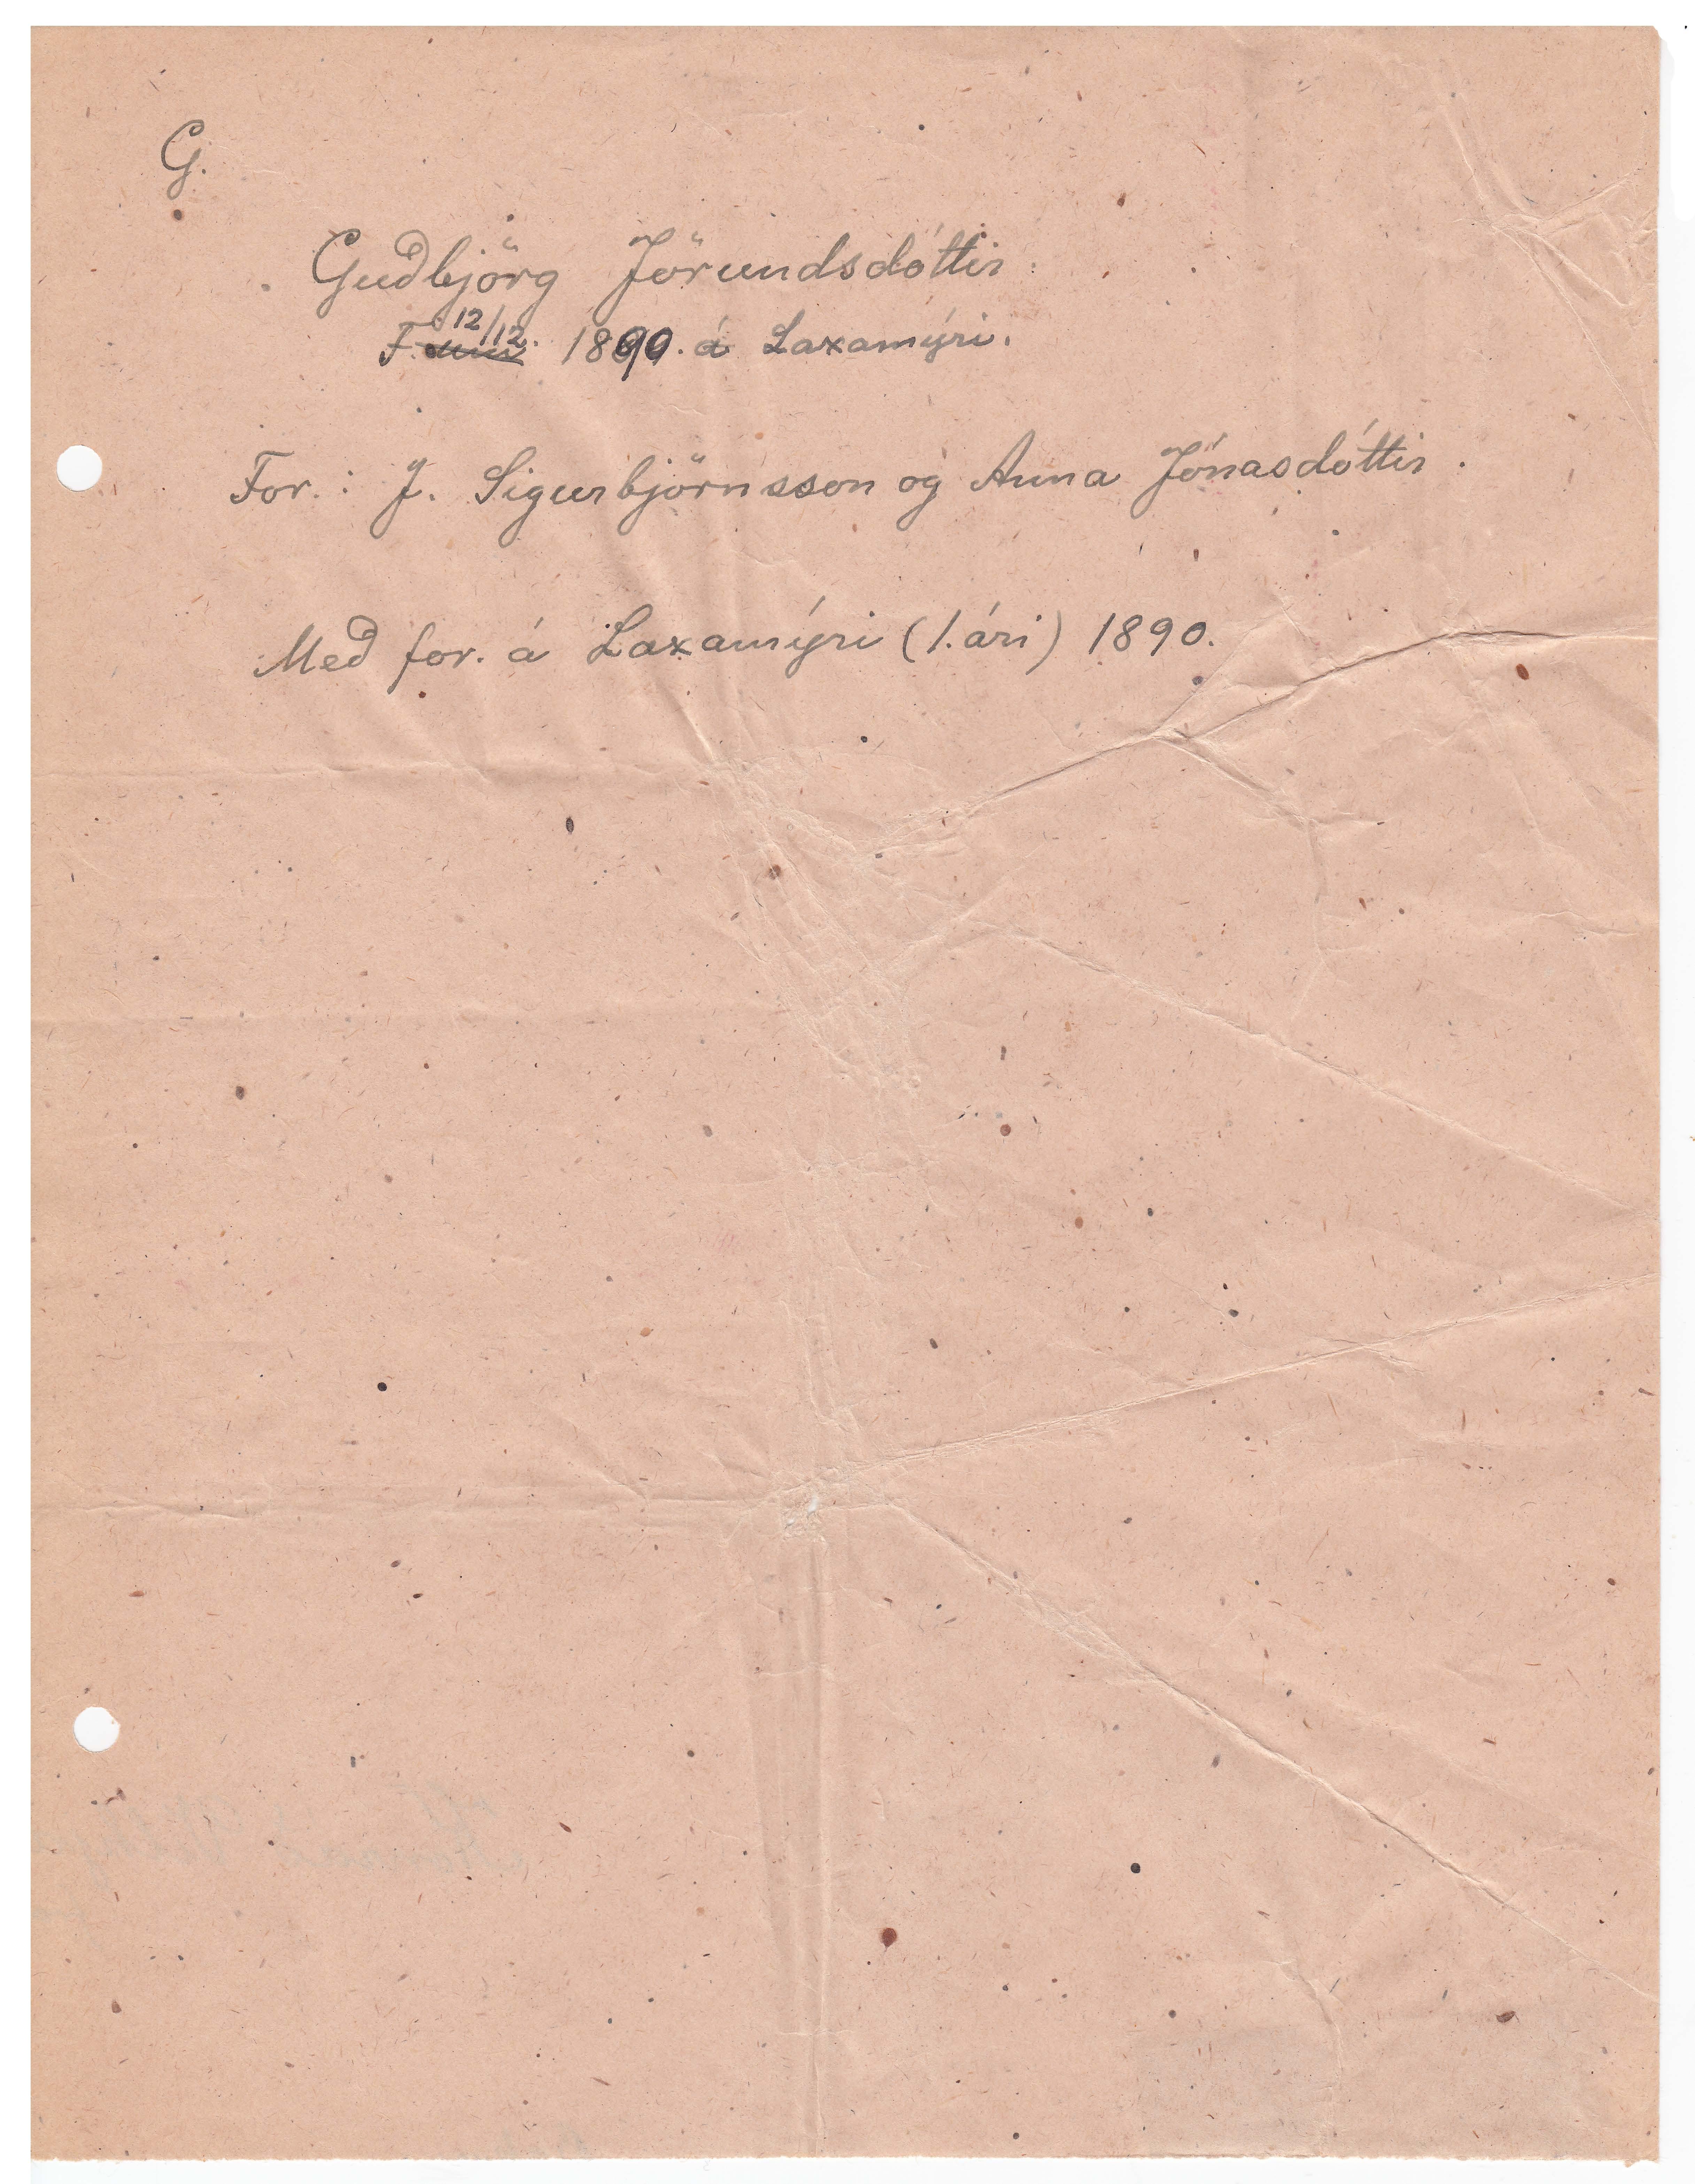 G.
Guðbjörg Jörundsdóttir.
F. 12/12. 1890. á Laxamýri.
For.: J. Sigurbjörnsson og Anna Jónasdóttir.
Með for. á Laxamýri (1. ári) 1890.